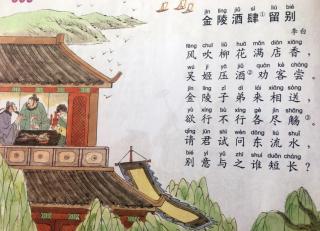 jīn líng jiǔ sì liú bié
金陵酒肆①留别
李白
fēng chuī liǔ huā mǎn diàn xiāng
风吹柳花满店香，
wú jī yā jiǔ quàn kè cháng
吴姬压酒②劝客尝。
jīn líng zǐ dì lái xiāng sòng
金陵子弟来相送，
yù xíng bù xíng gè jìn shāng
欲行不行各尽觞③。
qǐng jūn shì wèn dōng liú shuǐ
请君试问东流水，
bié yì yǔ zhī shuí duǎn cháng
别意与之谁短长？